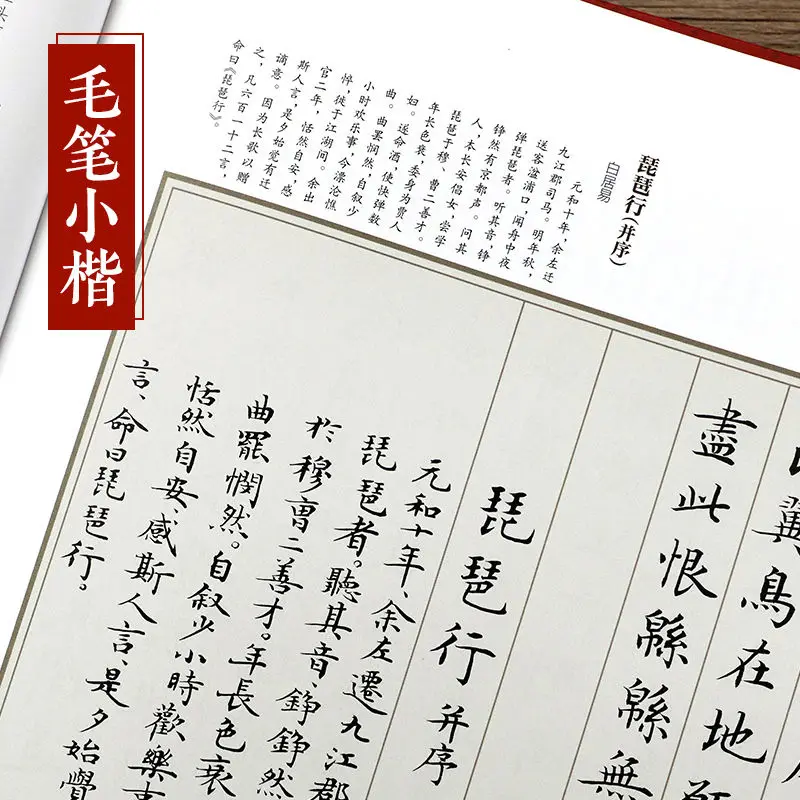 毛笔小楷
琵琶行(并序)
白居易
元和十年,余左迁
九江郡司马。明年秋,
送客湓浦口,闻舟中夜
弹琵琶者。听其音,铮
铮然有京都声。问其
人,本长安倡女,尝学
琵琶于穆、曹二善才。
年长色衰,委身为贾人
妇。遂命酒,使快弹数
曲。曲罢悯然,自叙少
小时欢乐事,今漂沦憔
悴,徙于江湖间。余出
官二年,恬然自安,感
斯人言,是夕始觉有迁
谪意。因为长歌以赠
之,凡六百一十二言,
命曰《琵琶行》。
翼鳥在地
盡此恨緜緜無
琵琶行 并序
元和十年、余左遷九江郡
琵琶者。聽其音、錚錚然
於穆曹二善才。年長色衰
曲罷憫然。自敘少小時歡樂
恬然自安、感斯人言、是夕始覺
言、命曰琵琶行。